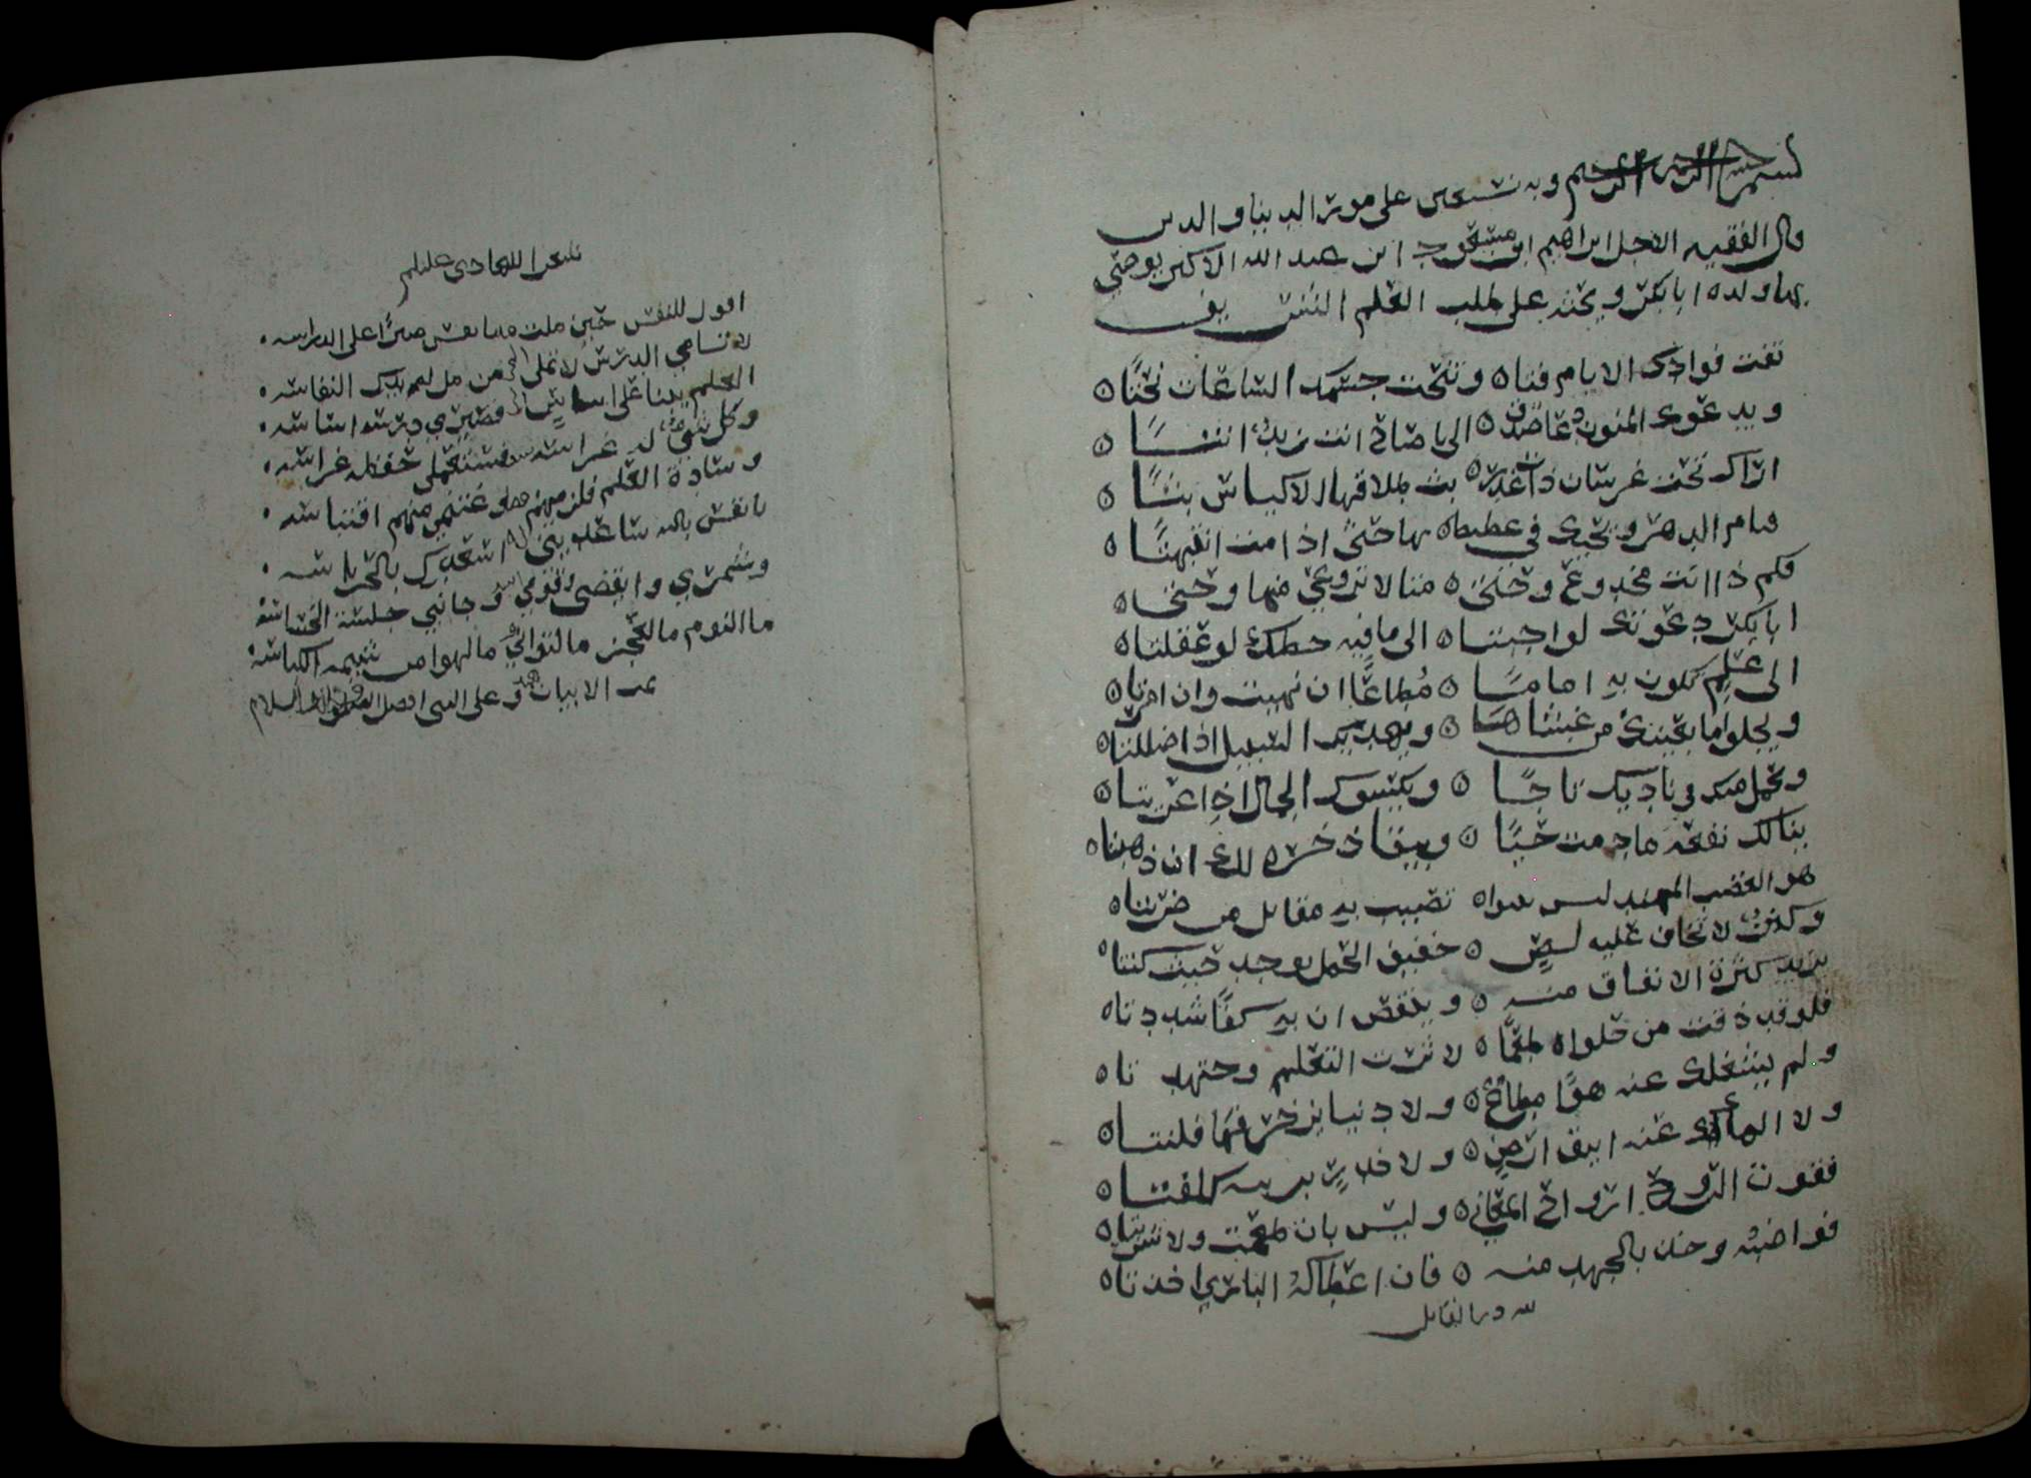 بسم الله الرحمن الرحيم وبه نستعين على امور الدنيا والدين
قال الفقيه الاجل ابراهيم ابن مسعود ابن عبد الله الاكبر يوصي
بها ولده ابا بكر ويحثه على طلب العلم الشريف
تفت فوادك الايام فتاه وتنحت جسمك الساعات نحتًاه
ويدعوك المنون دعا صدق ه الى يا صاح انت نريد انتا ه
اراك تحب عرسان ذات غدر ه بت طلاقها الاكياس بتًا ه
تنام الدهر ويحك في غطيطه بها حتى اذا مت انتبهتا ه
فكم ذا انت مخدوع وحتى ه متا لا ترعوي منها وحتى ه
ابا بكر دعوتك لو اجبتاه الى ما فيه حظك لو عقلتاه
الى علم تكون به اماما ه مُطاعًا ان نهيت وان امرتاه
ويجلوا ما بعينك من غشاها ه ويهديك السبيل اذا ضللتاه
وتحمل منه في ناديك تاجًا ه ويكسوك الجمال اذا عريتاه
ينالك نفعه مادمت حيًا ه ويبقا ذخره لك ان ذهبتاه
هو العضب المهند ليس ينبواه تصيب به مقاتل من ضربتاه
وكنز لا تخاف عليه لصٍ ه خفيف الحمل يوجد حيث كنتاه
يزيد كثرة الانفاق منه ه وينقص ان به كفًا شددتاه
فلو قد ذقت من حلواه طعمًا ه لاثرت التعلم وجتهد تاه
ولم يشغلك عنه هوًا مطاع ه ولا دنيا بزخرفها فتنتاه
ولا الهاك عنه انيق ارضٍ ه ولا خدرٍ بربربه كلفتاه
فقوت الروح ارواح المعاني ه وليس بان طعمت ولا شربتاه
فواضبه وخذ بالجهد منه ه فان اعطاكه الباري اخذتاه
لله در القايل
اقول للنفس حين ملت ه يا نفس صبرًا على الدراسه
لا تسامي الدرس لا تملي ه من مل لم يدرك النفاسه
العلم يبنا على اساس ه فصيري درسه اساسه
وكل شي له غراسه ه فستعملي حفظه غراسه
وسادة العلم فلزميهم ه وغتنمي منهم اقتباسه
يا نفس بالله ساعديني ه اسعدك بالحراسه
وشمري وانهضي وقومي ه وجانبي جلسة الخساسه
ما النوم ما العجز ما التواني ه ما لهوا من شيمة الكياسه
تمت الابيات وعلى النبي افضل الصلوة والسلام